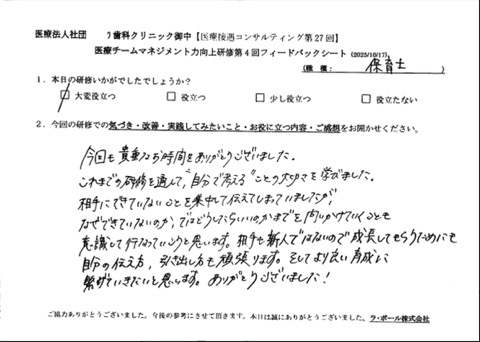 医療法人社団 り歯科クリニック御中【医療接遇コンサルティング第27回】
医療チームマネジメント力向上研修第4回フィードバックシート (2025/10/17)
(職種: 保育士)
1. 本日の研修いかがでしたでしょうか?
□大変役立つ □役立つ □少し役立つ □役立たない
2. 今回の研修での気づき・改善・実践してみたいこと・お役に立つ内容・ご感想をお聞かせください。
今回も貴重なお時間をありがとうございました。
これまでの研修を通して、"自分で考える"ことの大切さを学びました。
相手にできていないことを集中して伝えてしまっていましたが、
なぜできていないのか、ではどうしたらいいのかまでを問いかけていくことも
意識して行なっていこうと思います。相手も新人ではないので成長してもらうためにも
自分の伝え方、引き出し方も頑張ります。そしてより良い育成に
繋げていきたいと思います。ありがとうございました!
ご協力ありがとうございました。今後の参考にさせて頂きます。本日は誠にありがとうございました。ラ・ポール株式会社